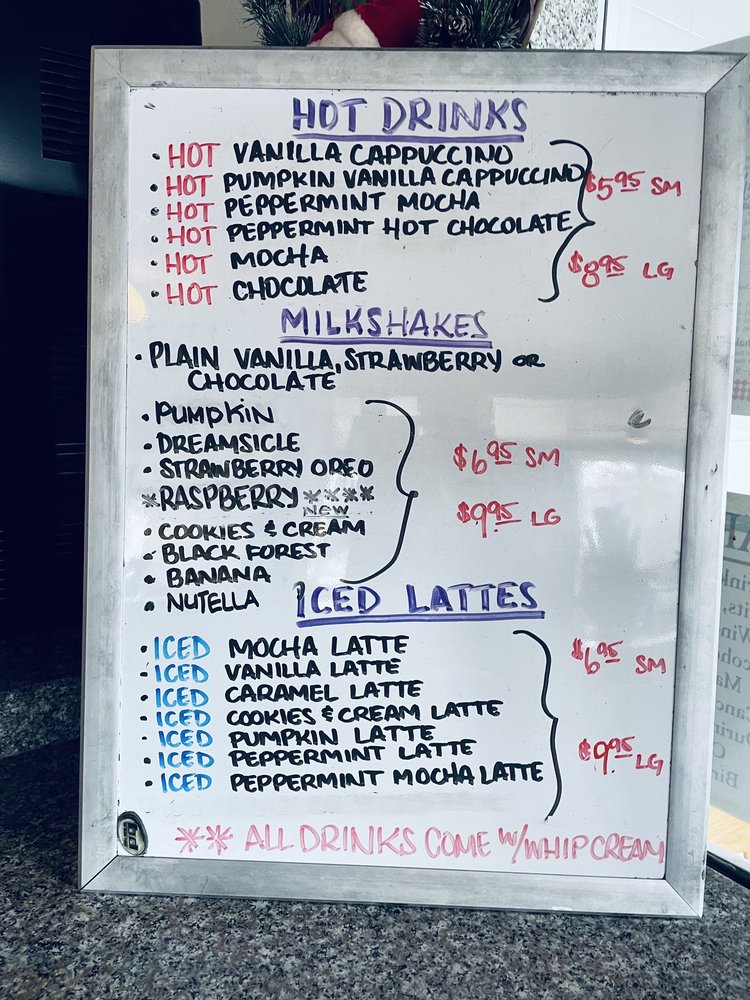 HOT DRINKS
• HOT VANILLA CAPPUCCINO
• HOT PUMPKIN VANILLA CAPPUCCINO $5.95 SM
• HOT PEPPERMINT MOCHA
• HOT PEPPERMINT HOT CHOCOLATE
• HOT MOCHA $8.95 LG
• HOT CHOCOLATE
MILKSHAKES
• PLAIN VANILLA, STRAWBERRY OR
CHOCOLATE
• PUMPKIN
• DREAMSICLE
• STRAWBERRY OREO $6.95 SM
*RASPBERRY ****
NEW $9.95 LG
• COOKIES & CREAM
• BLACK FOREST
• BANANA
• NUTELLA
ICED LATTES
• ICED MOCHA LATTE $6.95 SM
• ICED VANILLA LATTE
• ICED CARAMEL LATTE
• ICED COOKIES & CREAM LATTE
• ICED PUMPKIN LATTE
• ICED PEPPERMINT LATTE $9.95 LG
• ICED PEPPERMINT MOCHA LATTE
** ALL DRINKS COME W/WHIP CREAM